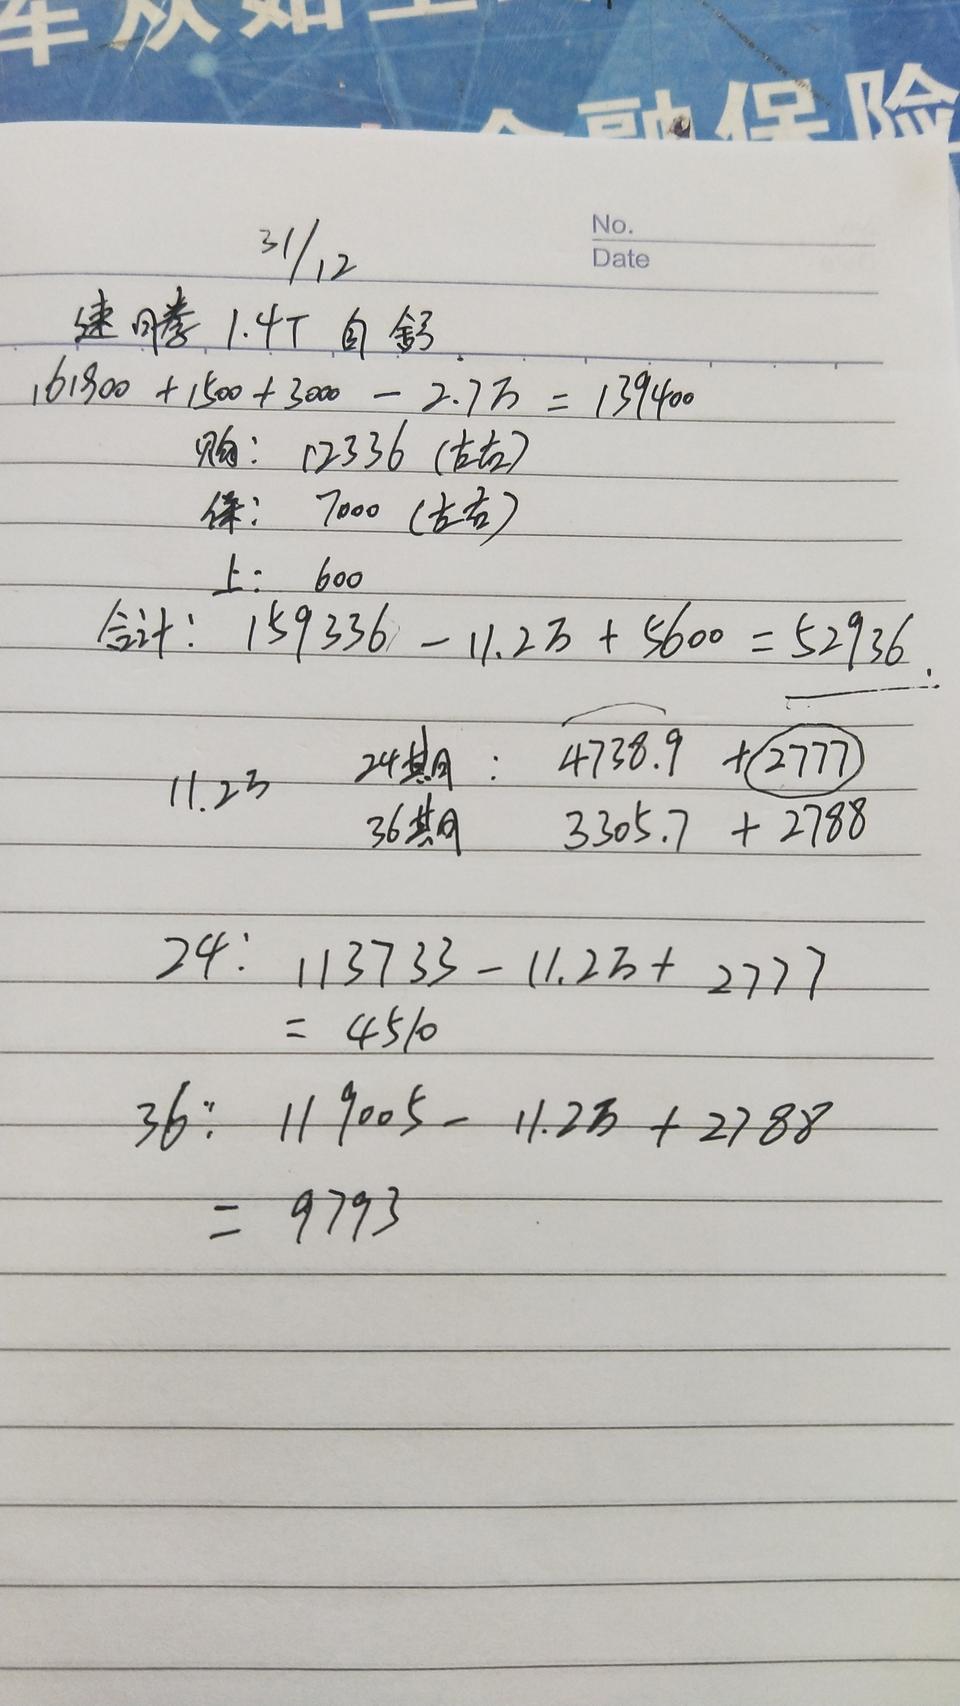 库从如
金融保险
31/12
No.
Date
速腾 1.4T 自舒
161900 + 1500 + 3000 - 2.7万 = 139400
购: 12336 (左右)
保: 7000 (左右)
上: 600
合计: 159336 - 11.2万 + 5600 = 52936.
11.2万
24期: 4738.9 + 2777
36期 3305.7 + 2788
24: 113733 - 11.2万 + 2777
= 4510
36: 119005 - 11.2万 + 2788
= 9793